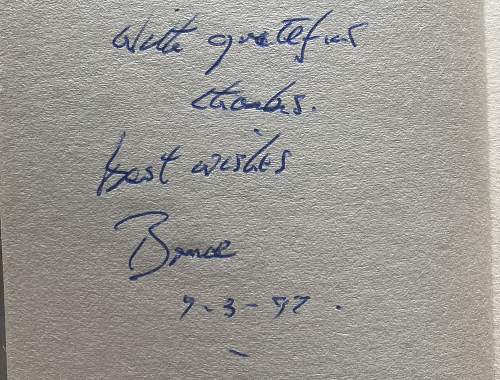 With grateful
thanks.
best wishes
Bruce
7-3-97.